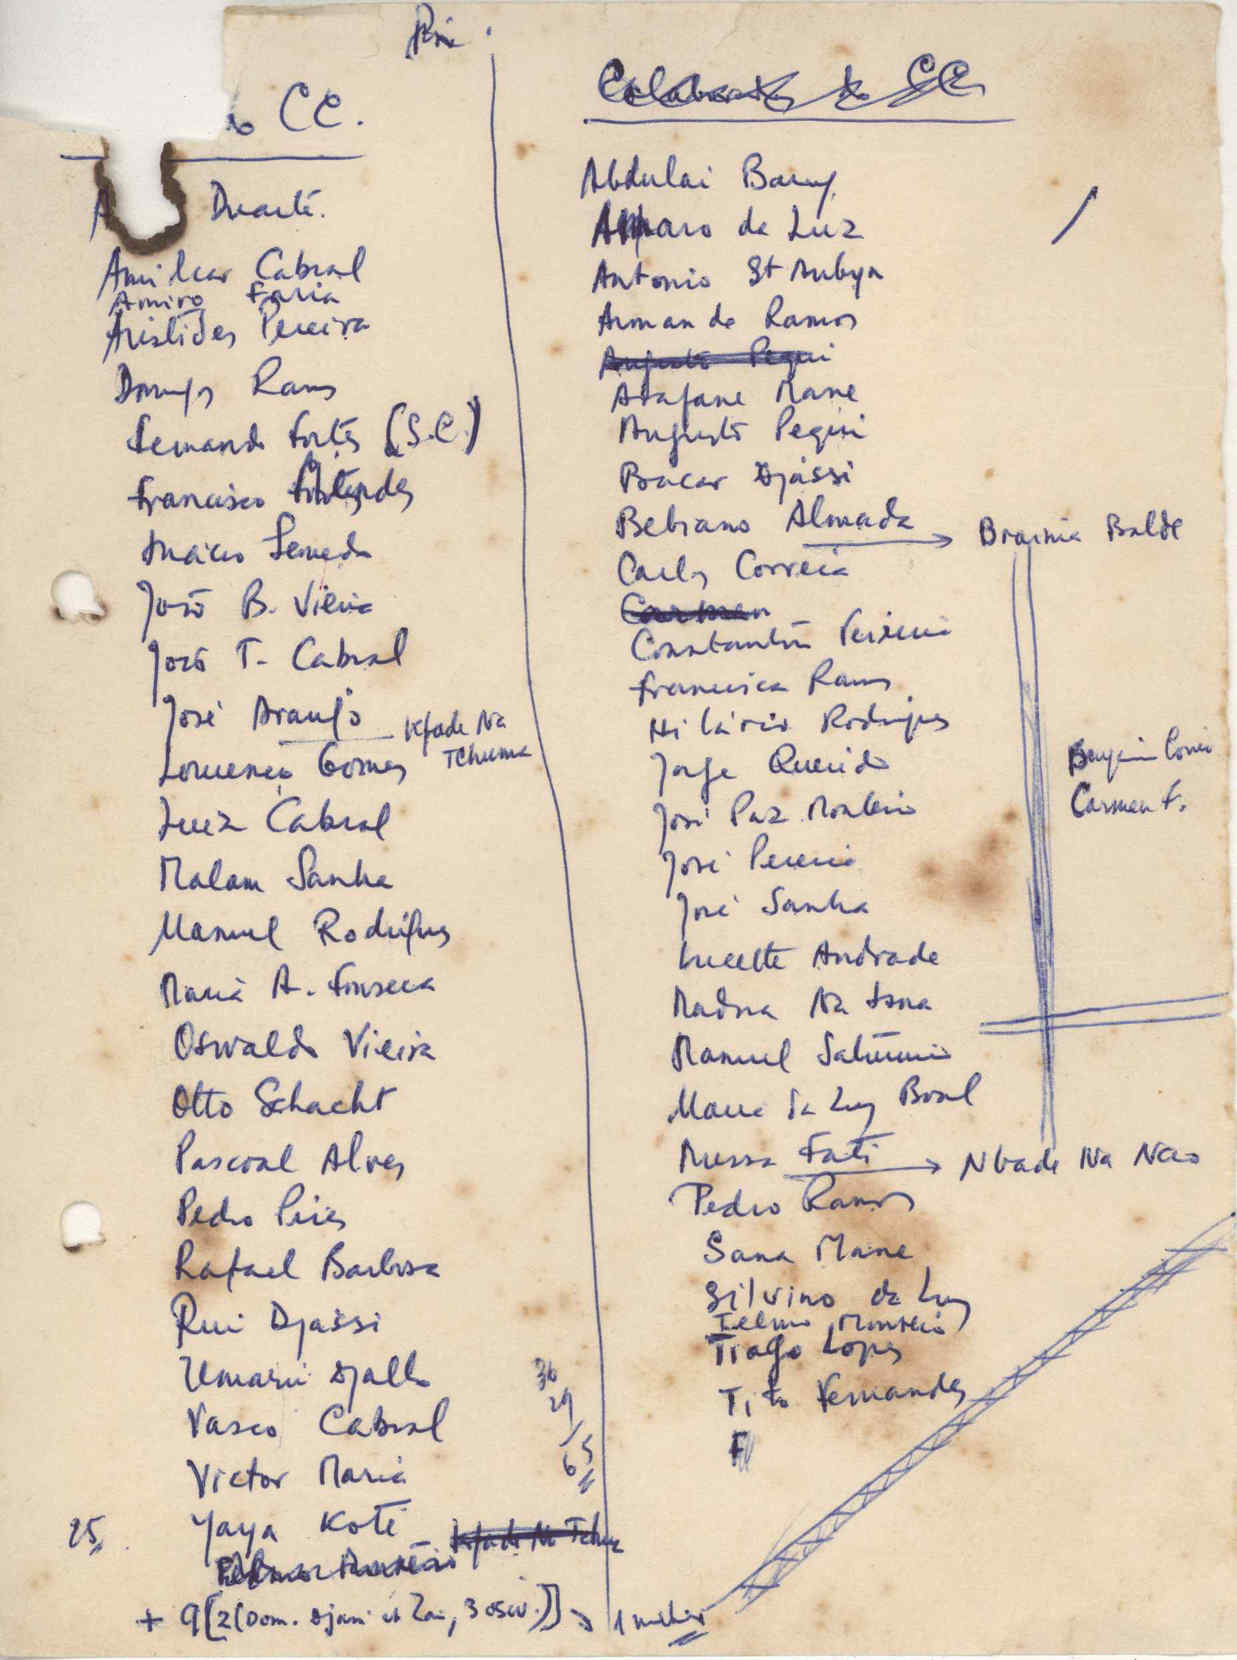 CC.
Duarte.
Amilcar Cabral
Amiro Faria
Aristides Pereira
Domingos Ramos
Fernando Fortes (S.C.)
Francisco Mendes
Inácio Semedo
João B. Vieira
João T. Cabral
José Araujo
Kfade Na Tchuma
Lourenço Gomes
Luiz Cabral
Malam Sanha
Manuel Rodrigues
Maria A. Fonseca
Oswaldo Vieira
Otto Schacht
Pascoal Alves
Pedro Pires
Rafael Barbosa
Rui Djassi
Umaru Djallo
Vasco Cabral
Victor Maria
25 Yaya Koté
36
29
65
+ 9 [2 (Dom. 3
Colaboradores do CC
Abdulai Barry
Amaro da Luz
Antonio St Aubyn
Armando Ramos
Augusto Pequi
Arafane Mane
Augusto Pequi
Bacar Djassi
Bebiano Almada → Braima Balde
Carlos Correia
Carmen
Constantino Teixeira
Francisca Ramos
Hilário Rodrigues
Jorge Querido
José Paz Monteiro
José Pereira
José Sanha
Lucette Andrade
Madna Na Isna
Manuel Saturnino
Maria da Luz Boal
Mussa Fati → Nbade Na
Pedro Ramos
Sana Mane
Silvino da Luz
Monteiro
Tiago Lopes
Tito Fernandes
F
Carmen F.